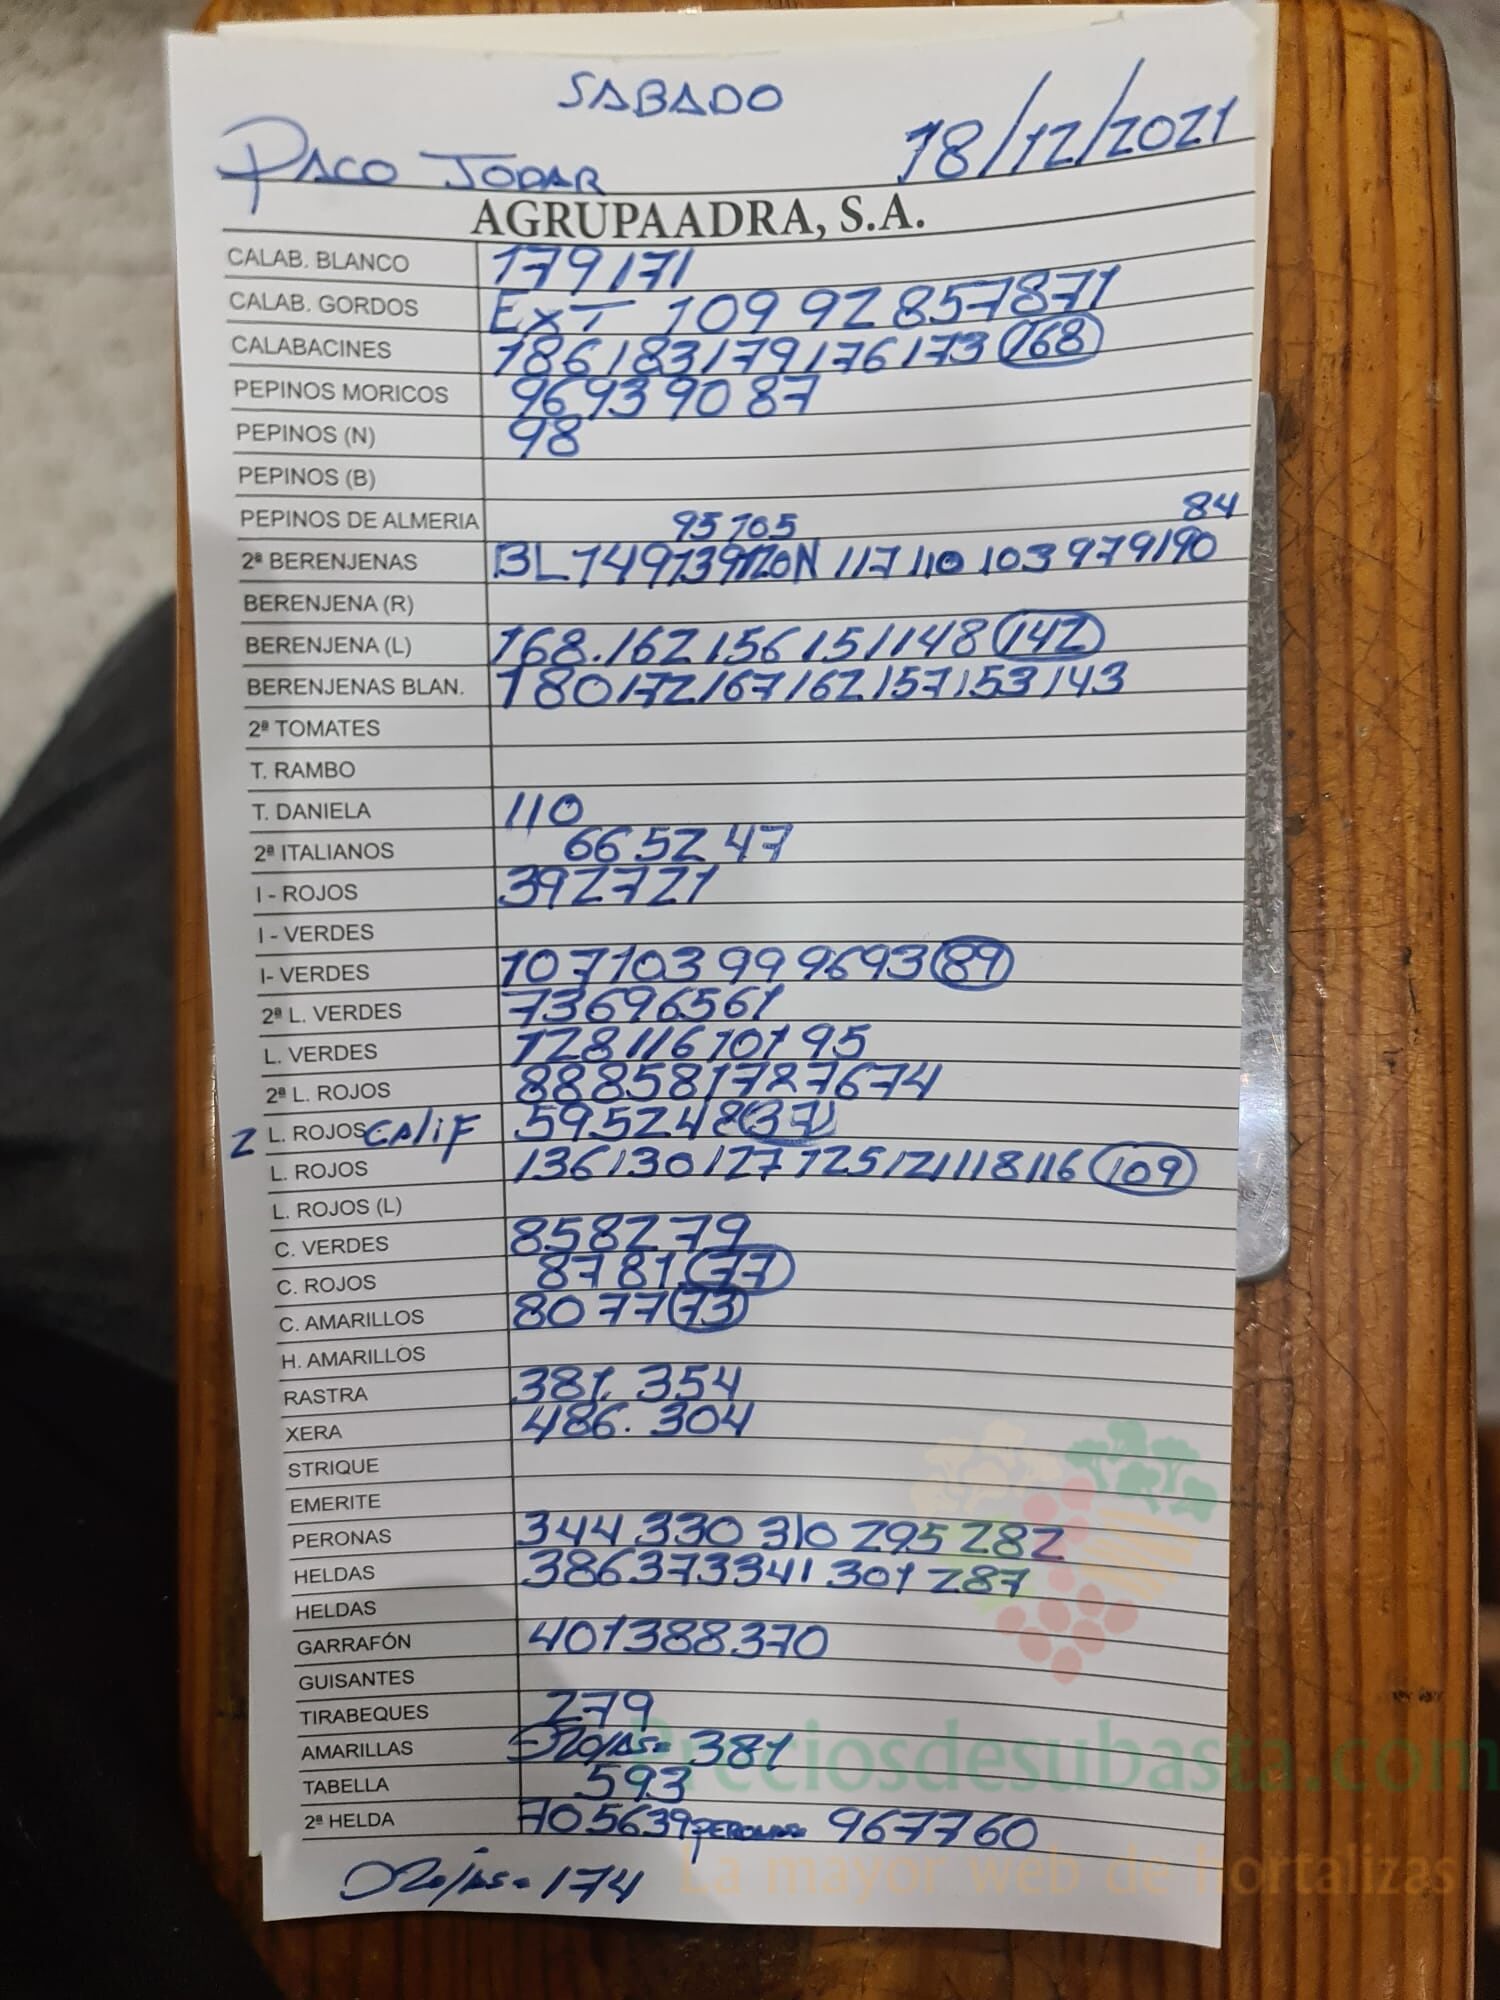 SABADO
PACO JODAR 18/12/2021
AGRUPAADRA, S.A.
CALAB. BLANCO 179 171
CALAB. GORDOS EXT 109 92 85 78 71
CALABACINES 186 183 179 176 173 168
PEPINOS MORICOS 96 93 90 87
PEPINOS (N) 98
PEPINOS (B)
PEPINOS DE ALMERIA
95 105 84
2ª BERENJENAS BL 149 139 120 N 117 110 103 97 91 90
BERENJENA (R)
BERENJENA (L) 168. 162 156 151 148 142
BERENJENAS BLAN. 180 172 167 162 157 153 143
2ª TOMATES
T. RAMBO
T. DANIELA 110
2ª ITALIANOS 66 52 47
I - ROJOS 39 27 21
I - VERDES
I- VERDES 107 103 99 96 93 89
2ª L. VERDES 73 69 65 61
L. VERDES 128 116 101 95
2ª L. ROJOS 88 85 81 78 76 74
2 L. ROJOS CALIF 59 52 48 37
L. ROJOS 136 130 127 125 121 118 116 109
L. ROJOS (L)
C. VERDES 85 82 79
C. ROJOS 87 81 77
C. AMARILLOS 80 77 73
H. AMARILLOS
RASTRA 381. 354
XERA 486. 304
STRIQUE
EMERITE
PERONAS 344 330 310 295 282
HELDAS 386 373 341 301 287
HELDAS
GARRAFÓN 401 388 370
GUISANTES
TIRABEQUES 279
AMARILLAS = 381
TABELLA 593
2ª HELDA 70 56 39 PERONAS 96 77 60
= 174
Preciosdesubasta.com
La mayor web de hortalizas